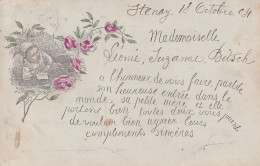 Stenay 18 Octobre 04
Mademoiselle
Léonie, Suzanne Bitsch
a l'honneur de vous faire part de
son heureuse entrée dans le
monde, sa petite mère et elle
portent bien toutes deux vous prient
de vouloir bien agréer leurs
compliments sincères